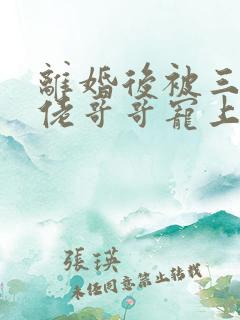 離婚後被三
佬哥哥寵上
張瑛
未經同意禁止轉載